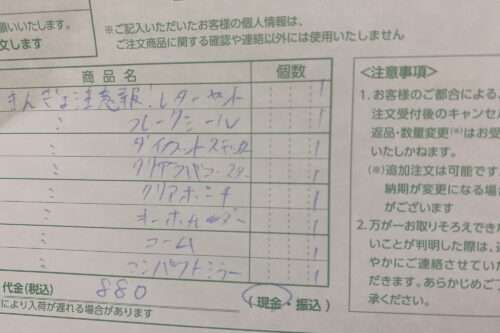 願いいたします。
文します
※ご記入いただいたお客様の個人情報は、
ご注文商品に関する確認や連絡以外には使用いたしません
商品名 個数
きんぎょ注意報!レターセット 1
〃 フレークシール 1
〃 ダイカットステッカー 1
〃 クリアフルカラー 1
〃 クリアポーチ 1
〃 キーホルダー 1
〃 コーム 1
〃 コンパクトミラー 1
代金(税込) 880 (現金・振込)
により入荷が遅れる場合があります
<注意事項>
1. お客様のご都合による、
注文受付後のキャンセル
返品・数量変更(※)はお受
いたしかねます。
(※)追加注文は可能です
納期が変更になる場
がございます
2. 万が一お取りそろえできな
いことが判明した際は、速
やかにご連絡させていた
だきます。あらかじめご
承ください。